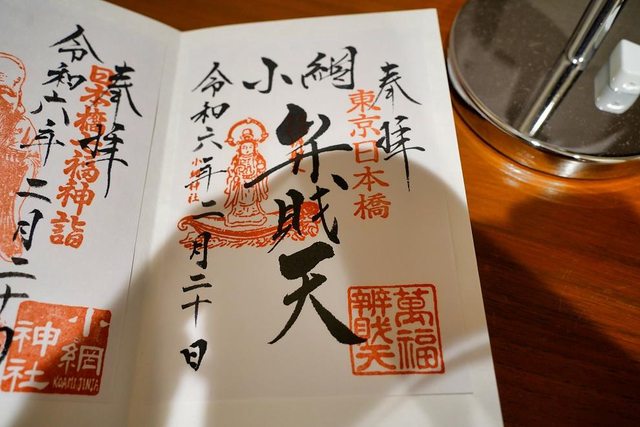 奉拝
東京日本橋
小網
弁財天
萬福
辨財天
小網神社
令和六年二月二十日
奉拝
日本橋七福神詣
令和六年二月二十
小網
神社
KOAMI JINJA